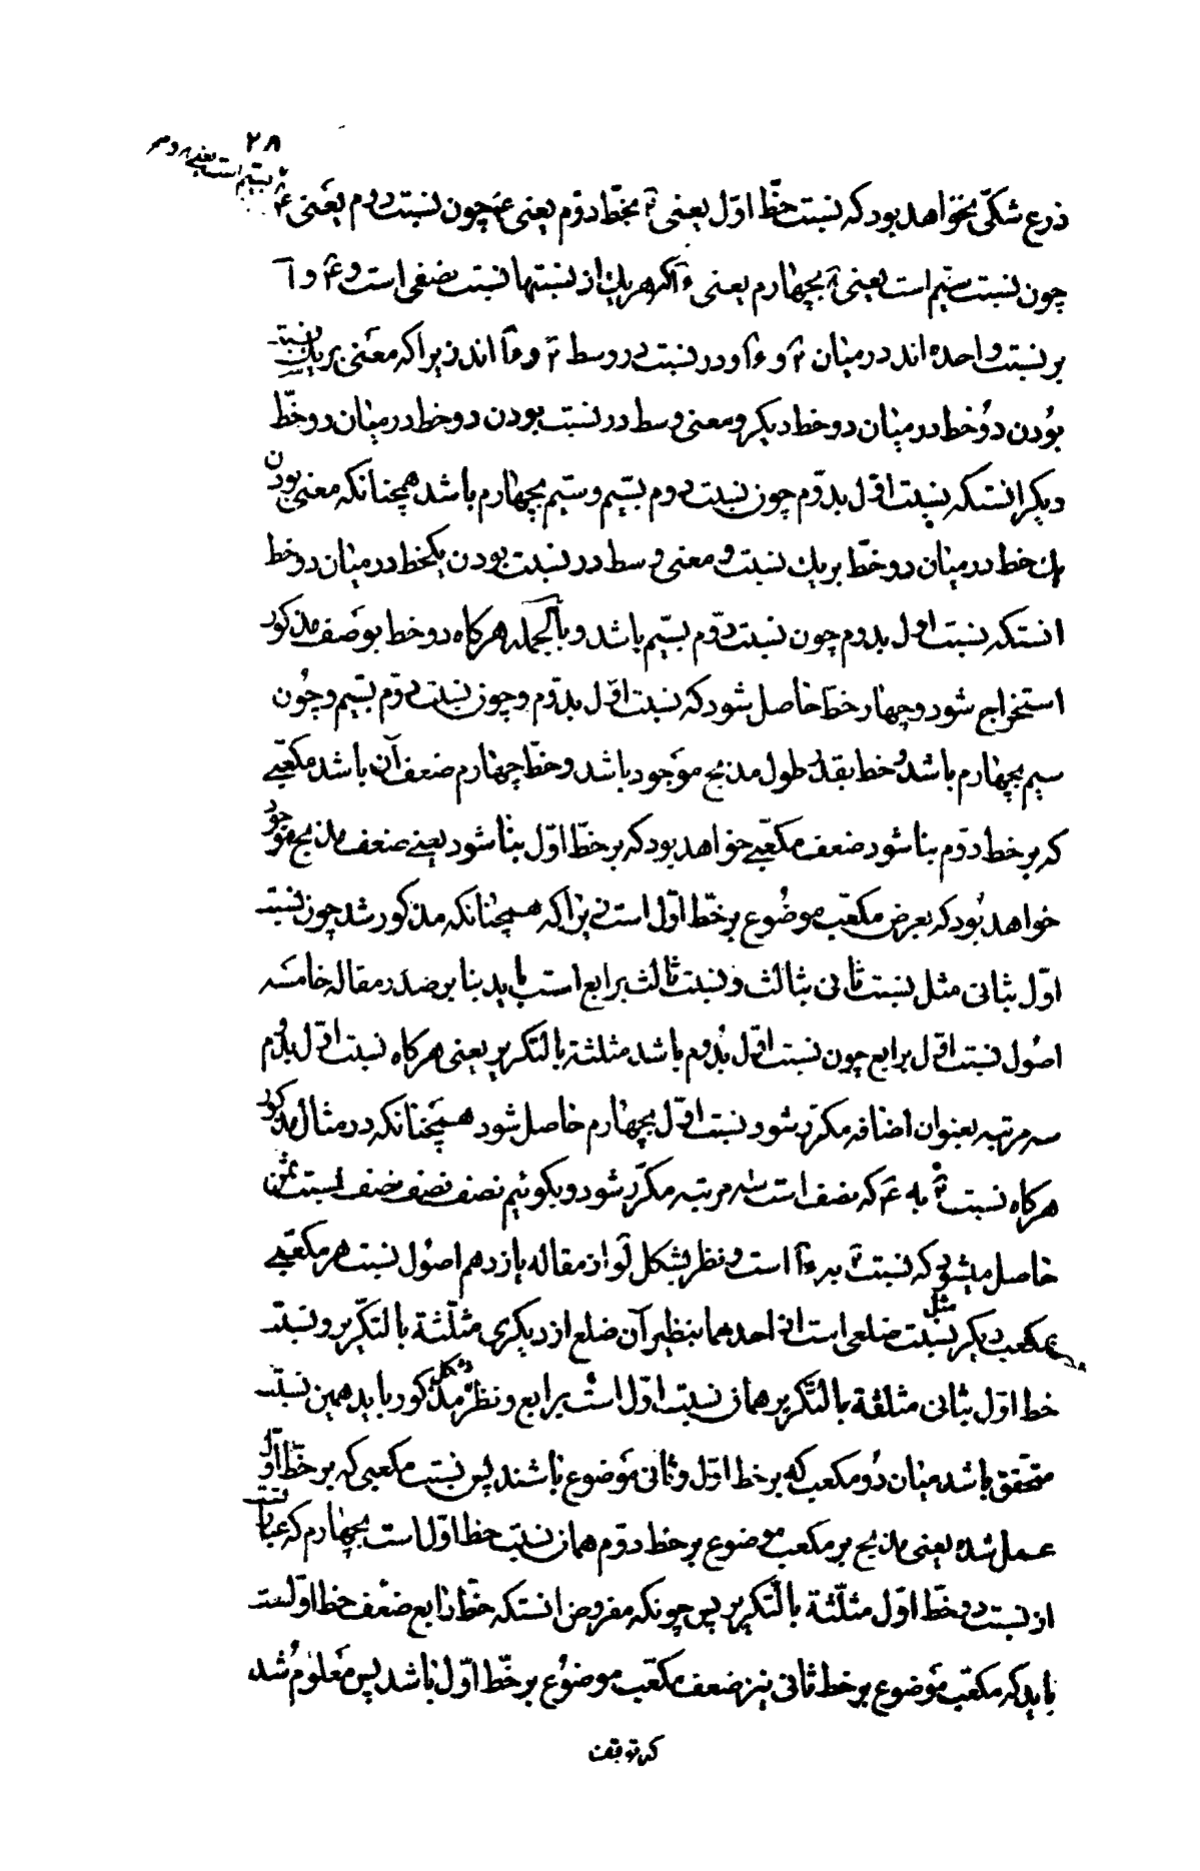 ۲۸
بسیم است یعنی ۸ و دوم
ذرع شکّی نخواهد بود که نسبت خطّ اوّل یعنی ۲ بخطّ دوّم یعنی ۴ چون نسبت دوم یعنی ۴
چون نسبت سیّم است یعنی ۸ بچهارم یعنی ۱۶ که هر یك از نسبتها نسبت نصفی است و ۴ و ۸
بر نسبت واحده اند در میان ۲ و ۱۶ و در نسبت در وسط ۲ و ۱۶ اند زیرا که معنی بر یك نسبت
بودن دو خط در میان دو خط دیکر و معنی وسط در نسبت بودن دو خط در میان دو خطّ
دیکر انستکه نسبت اوّل بدوّم چون نسبت دوم بسیّم و سیّم بچهارم باشد همچنانکه معنی بودن
یك خط در میان دو خطّ بر یك نسبت و معنی وسط در نسبت بودن یکخط در میان دو خط
انستکه نسبت اول بدوم چون نسبت دوّم بسیّم باشد و بالجمله هر کاه دو خط بوصف مذکور
استخراج شود و چهار خطّ حاصل شود که نسبت اوّل بدوّم و چون نسبت دوّم بسیّم و چون
سیم بچهارم باشد و خط بقدر طول مذبح موجود باشد و خطّ چهارم ضعف آن باشد مکعّبی
که بر خط دوّم بنا شود ضعف مکعّبی خواهد بود که بر خطّ اوّل بنا شود یعنی ضعف مذبح موجود
خواهد بود که بعرض مکعّب موضوع بر خطّ اوّل است زیرا که همچنانکه مذکور شد چون نسبت
اوّل بثانی مثل نسبت ثانی بثالث و نسبت ثالث برابع است باید بنا بر صدر مقاله خامسه
اصول نسبت اوّل برابع چون نسبت اوّل بدوم باشد مثلثة بالتکریر یعنی هر کاه نسبت اوّل بدوّم
سه مرتبه بعنوان اضافه مکرّر شود نسبت اوّل بچهارم حاصل شود همچنانکه در مثال مذکور
هر کاه نسبت ۲ به ۴ که نصف است سه مرتبه مکرّر شود و بکوئیم نصف نصف نصف نسبت ثمن
حاصل میشود که نسبت ۲ به ۱۶ است و نظر بشکل لو از مقاله یازدهم اصول نسبت هر مکعّبی
بمکعب دیکر مثل نسبت ضلعی است از احدهما بنظیر آن ضلع از دیکری مثلّثة بالتکریر و نسبت
خط اوّل بثانی مثلثة بالتّکریر همان نسبت اوّل است برابع و نظر بشکل مذکور باید همین نسبت
متحقق باشد میان دو مکعب که بر خط اوّل و ثانی موضوع باشند پس نسبت مکعبی که بر خطّ اوّل
عمل شده یعنی مذبح بر مکعب موضوع بر خط دوّم همان نسبت خط اوّل است بچهارم که عبارتست
از نسبت دو خطّ اوّل مثلّثة بالتکریر پس چونکه مفروض انستکه خطّ رابع ضعف خط اولست
باید که مکعّب موضوع بر خط ثانی نیز ضعف مکعّب موضوع بر خطّ اوّل باشد پس معلوم شد
که توقف